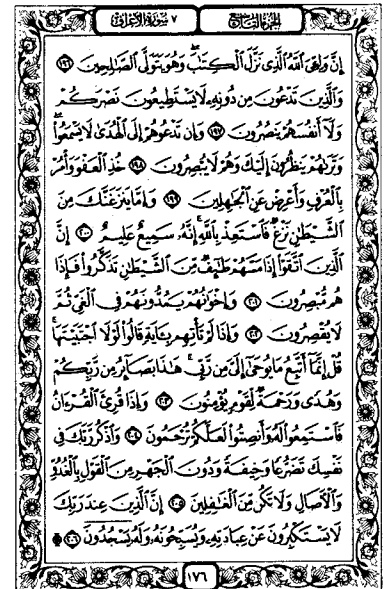 الجزء التاسع ٧ سورة الأعراف
إِنَّ وَلِـِّۧيَ ٱللَّهُ ٱلَّذِي نَزَّلَ ٱلۡكِتَٰبَۖ وَهُوَ يَتَوَلَّى ٱلصَّٰلِحِينَ ١٩٦
وَٱلَّذِينَ تَدۡعُونَ مِن دُونِهِۦ لَا يَسۡتَطِيعُونَ نَصۡرَكُمۡ
وَلَآ أَنفُسَهُمۡ يَنصُرُونَ ١٩٧ وَإِن تَدۡعُوهُمۡ إِلَى ٱلۡهُدَىٰ لَا يَسۡمَعُواْۖ
وَتَرَىٰهُمۡ يَنظُرُونَ إِلَيۡكَ وَهُمۡ لَا يُبۡصِرُونَ ١٩٨ خُذِ ٱلۡعَفۡوَ وَأۡمُرۡ
بِٱلۡعُرۡفِ وَأَعۡرِضۡ عَنِ ٱلۡجَٰهِلِينَ ١٩٩ وَإِمَّا يَنزَغَنَّكَ مِنَ
ٱلشَّيۡطَٰنِ نَزۡغٞ فَٱسۡتَعِذۡ بِٱللَّهِۚ إِنَّهُۥ سَمِيعٌ عَلِيمٌ ٢٠٠ إِنَّ
ٱلَّذِينَ ٱتَّقَوۡاْ إِذَا مَسَّهُمۡ طَٰٓئِفٞ مِّنَ ٱلشَّيۡطَٰنِ تَذَكَّرُواْ فَإِذَا
هُم مُّبۡصِرُونَ ٢٠١ وَإِخۡوَٰنُهُمۡ يَمُدُّونَهُمۡ فِي ٱلۡغَيِّ ثُمَّ
لَا يُقۡصِرُونَ ٢٠٢ وَإِذَا لَمۡ تَأۡتِهِم بِـَٔايَةٖ قَالُواْ لَوۡلَا ٱجۡتَبَيۡتَهَاۚ
قُلۡ إِنَّمَآ أَتَّبِعُ مَا يُوحَىٰٓ إِلَيَّ مِن رَّبِّيۚ هَٰذَا بَصَآئِرُ مِن رَّبِّكُمۡ
وَهُدٗى وَرَحۡمَةٞ لِّقَوۡمٖ يُؤۡمِنُونَ ٢٠٣ وَإِذَا قُرِئَ ٱلۡقُرۡءَانُ
فَٱسۡتَمِعُواْ لَهُۥ وَأَنصِتُواْ لَعَلَّكُمۡ تُرۡحَمُونَ ٢٠٤ وَٱذۡكُر رَّبَّكَ فِي
نَفۡسِكَ تَضَرُّعٗا وَخِيفَةٗ وَدُونَ ٱلۡجَهۡرِ مِنَ ٱلۡقَوۡلِ بِٱلۡغُدُوِّ
وَٱلۡأٓصَالِ وَلَا تَكُن مِّنَ ٱلۡغَٰفِلِينَ ٢٠٥ إِنَّ ٱلَّذِينَ عِندَ رَبِّكَ
لَا يَسۡتَكۡبِرُونَ عَنۡ عِبَادَتِهِۦ وَيُسَبِّحُونَهُۥ وَلَهُۥ يَسۡجُدُونَۤ ۩ ٢٠٦
١٧٦